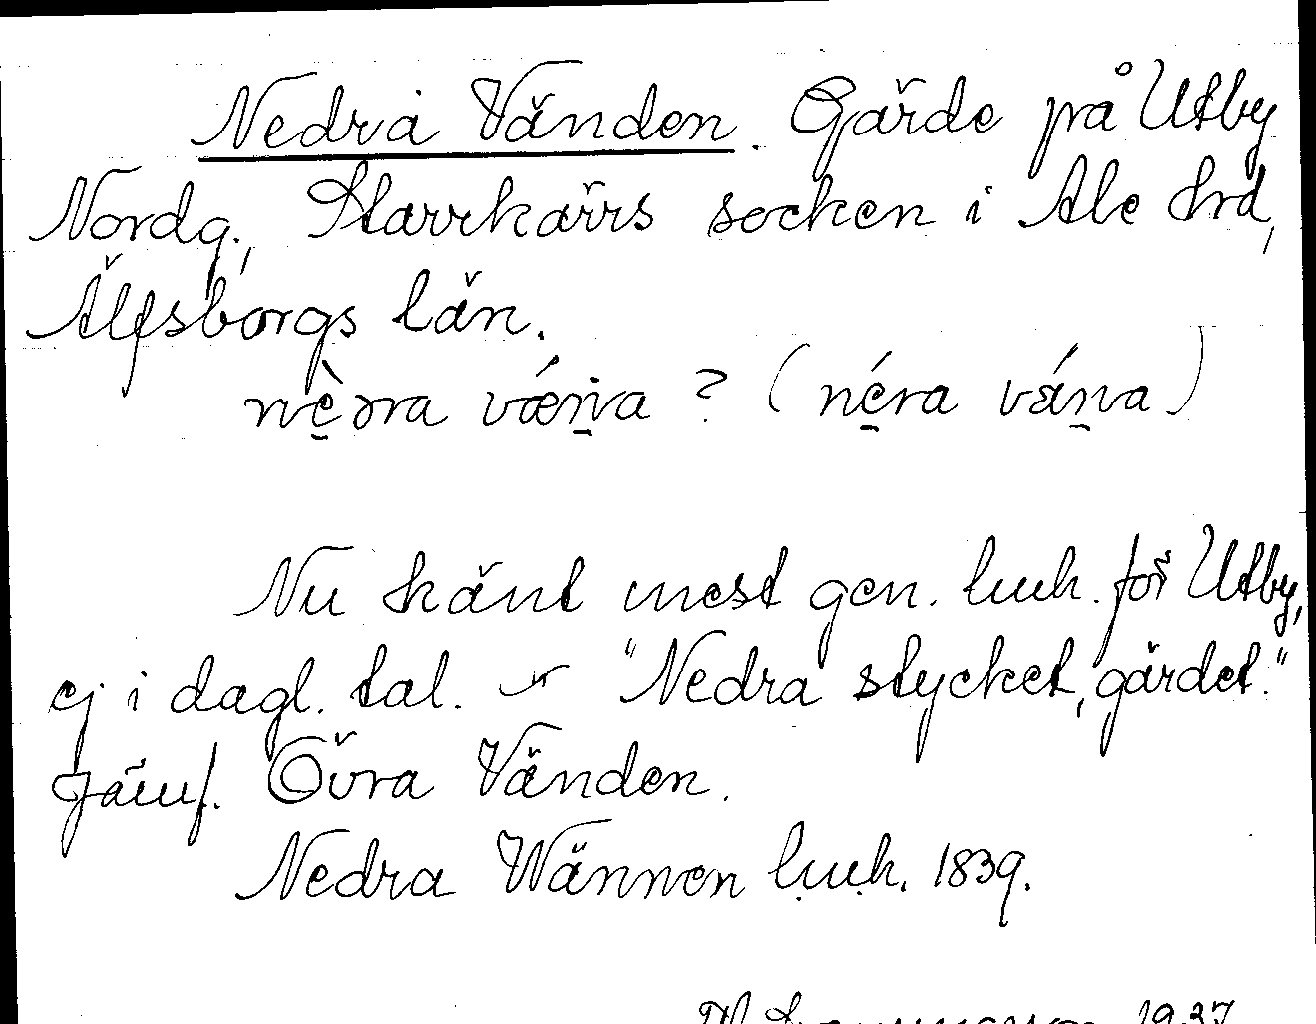 Nedra Vänden. Gärde på Utby
Nordg., Starrkärrs socken i Ale hrd,
Älfsborgs län.
nèdra vǽṉa ? (néra váṉa)
Nu känt mest gen. luh. för Utby,
ej i dagl. tal. "Nedra stycket, gärdet."
Jämf. Övra Vänden.
Nedra Wännen luh. 1839.
1937